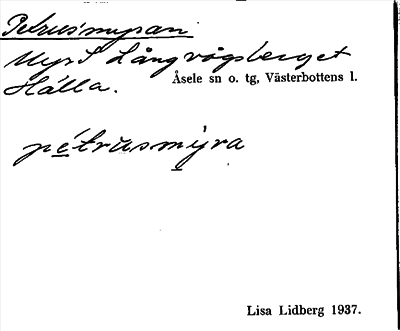 Petrusmyran
Myr S Långvågsberget
Hälla.
Åsele sn o. tg, Västerbottens l.
pétrusmýra
Lisa Lidberg 1937.